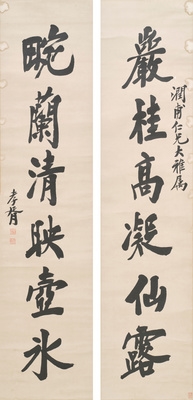 巖桂高凝仙露
潤甫仁兄大雅属
畹蘭清映壺冰
孝胥